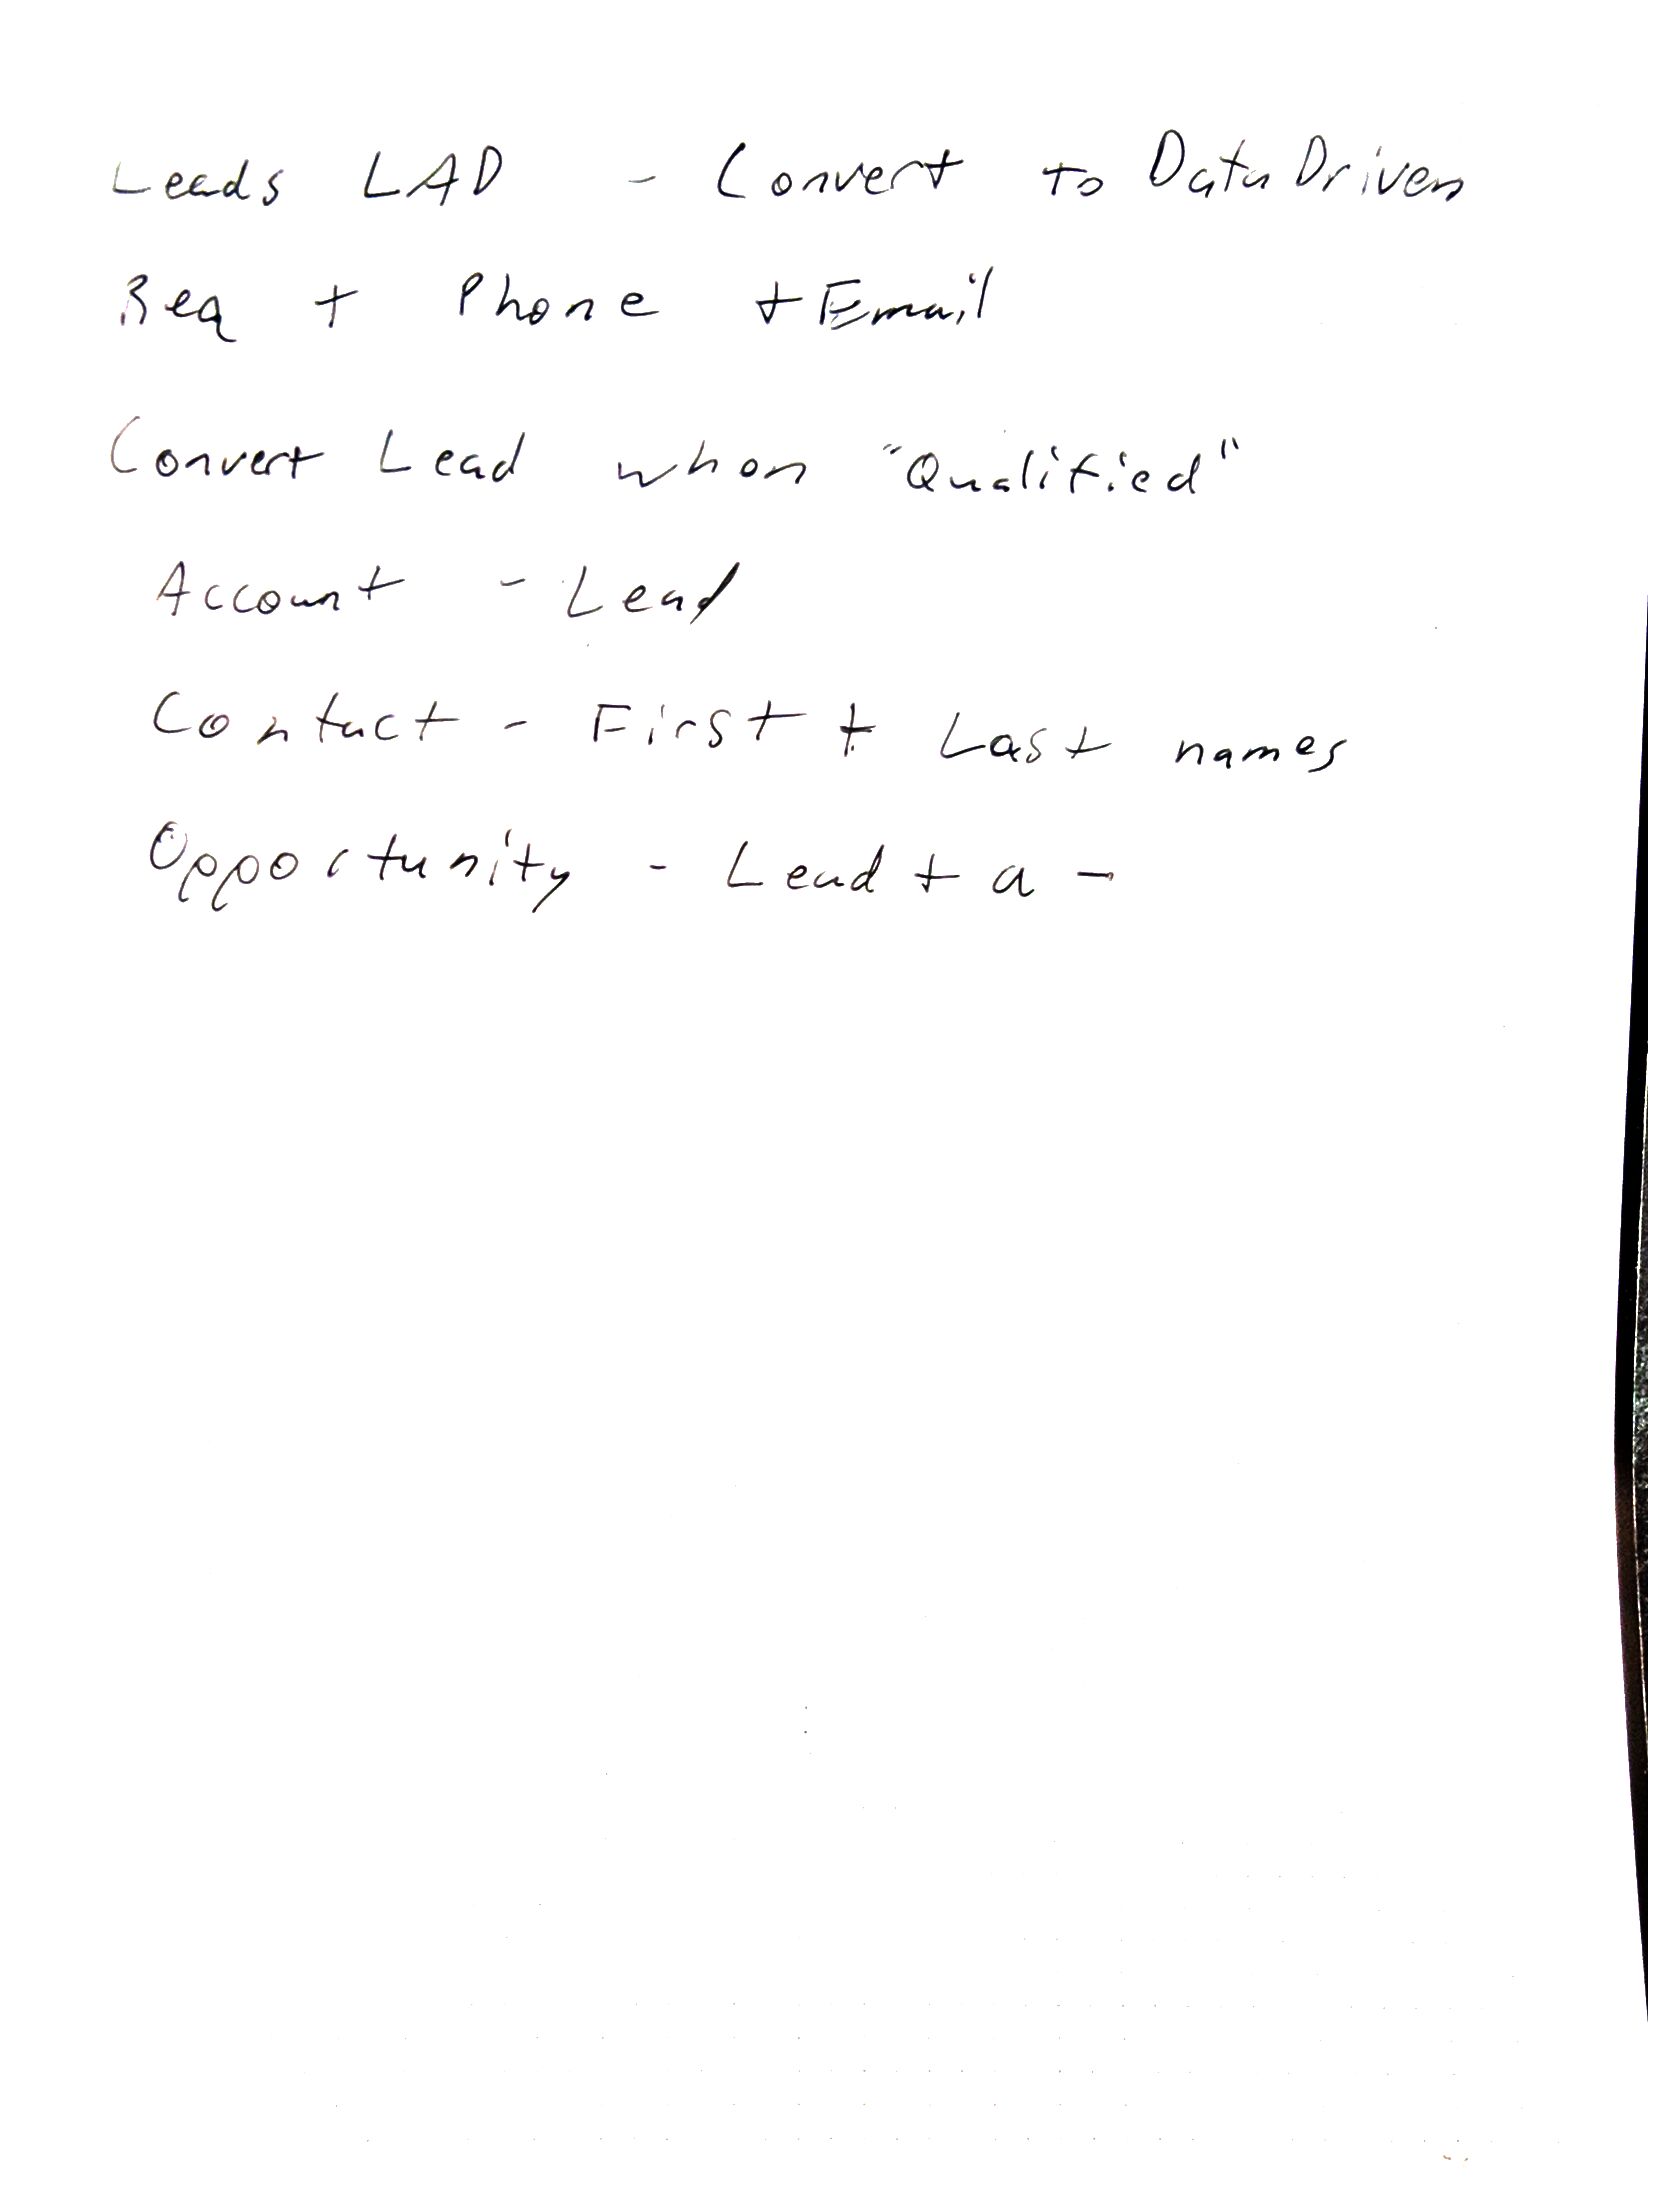 Leads LAD - Convert to Data Driven
Req + Phone + Email
Convert Lead when "Qualified"
Account - Lead
Contact - First + Last names
Opportunity - Lead + a -